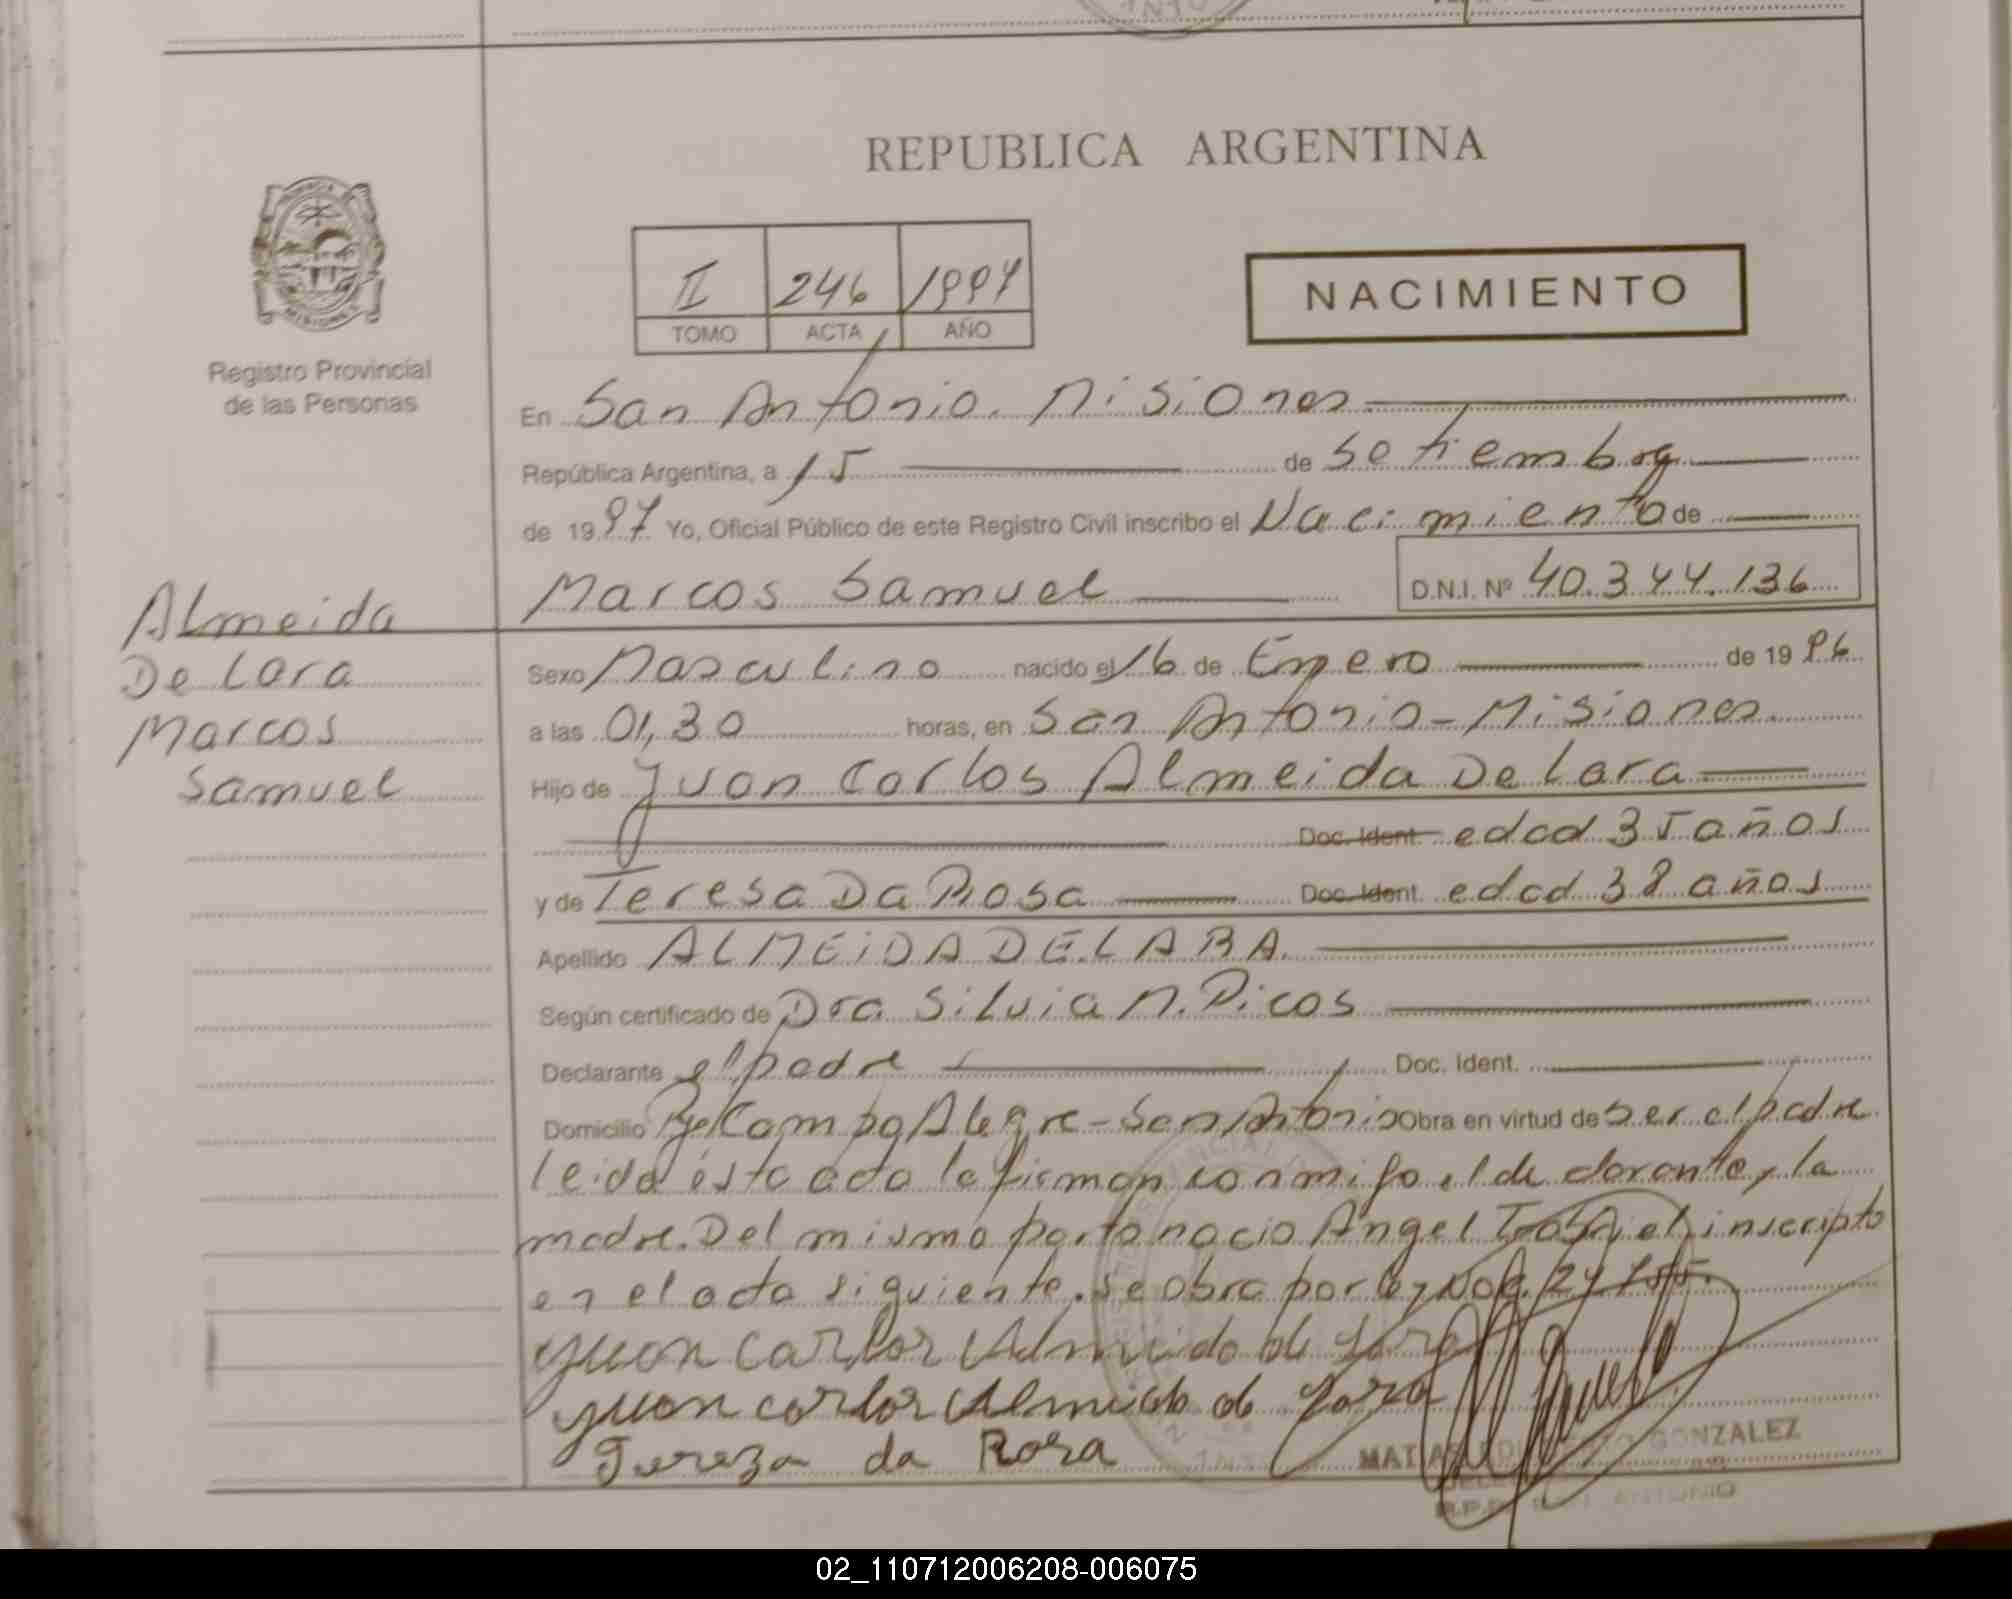 REPUBLICA ARGENTINA
II 246 1997
TOMO ACTA AÑO
NACIMIENTO
Registro Provincial
de las Personas
En San Antonio. Misiones
República Argentina, a 15 de Setiembre
de 1997 Yo, Oficial Público de este Registro Civil inscribo el Nacimiento de
Marcos Samuel D.N.I. Nº 40.344.136
Almeida
De Lara
Marcos
Samuel
Sexo Masculino nacido el 16 de Enero de 1996
a las 01,30 horas, en San Antonio - Misiones
Hijo de Juan Carlos Almeida De Lara
Doc. Ident. edad 35 años
y de Teresa Da Rosa Doc. Ident. edad 38 años
Apellido ALMEIDA DE LARA.
Según certificado de Dra Silvia N. Picos
Declarante el padre Doc. Ident.
Domicilio Campo Alegre - San Antonio Obra en virtud de ser el padre
leida ésta acta la firman conmigo el declarante y la
madre. Del mismo parto nacio Angel inscripto
en el acta siguiente. Se obra por ley
Juan Carlos Almeida de Lara
Juan Carlos Almeida de Lara
Tereza da Rosa
MATIAS GONZALEZ
SAN ANTONIO
02_110712006208-006075